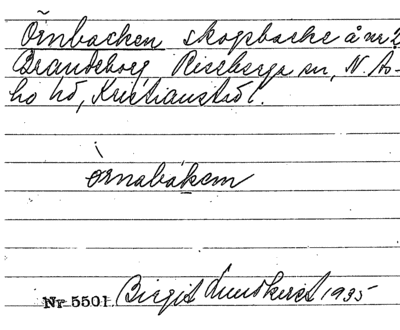 Örnbacken skogsbacke å nr 2
Brandeborg, Riseberga sn, N. Ås-
bo hd, Kristianst. l.
örnabakem
Nr 5501. Birgit Lundkvist 1935